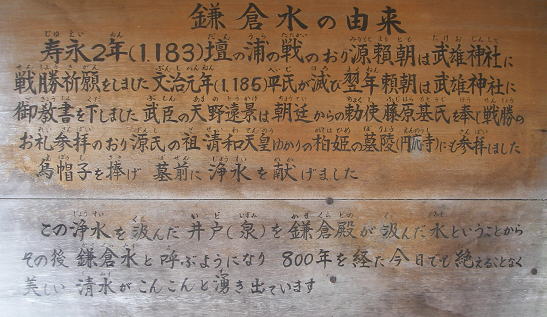 鎌倉水の由来
寿永2年(1.183)壇の浦の戦のおり源頼朝は武雄神社に
戦勝祈願をしました 文治元年(1.185)平氏が滅び翌年頼朝は武雄神社に
御教書を下しました 武臣の天野遠景は朝廷からの勅使藤原基氏を奉じ戦勝の
お礼参拝のおり源氏の祖 清和天皇ゆかりの柏姫の墓陵(円応寺)にも参拝しました
烏帽子を捧げ 墓前に浄水を献げました
この浄水を汲んだ井戸(泉)を鎌倉殿が汲んだ水ということから
その後 鎌倉水と呼ぶようになり 800年を経た今日でも絶えることなく
美しい 清水がこんこんと湧き出ています